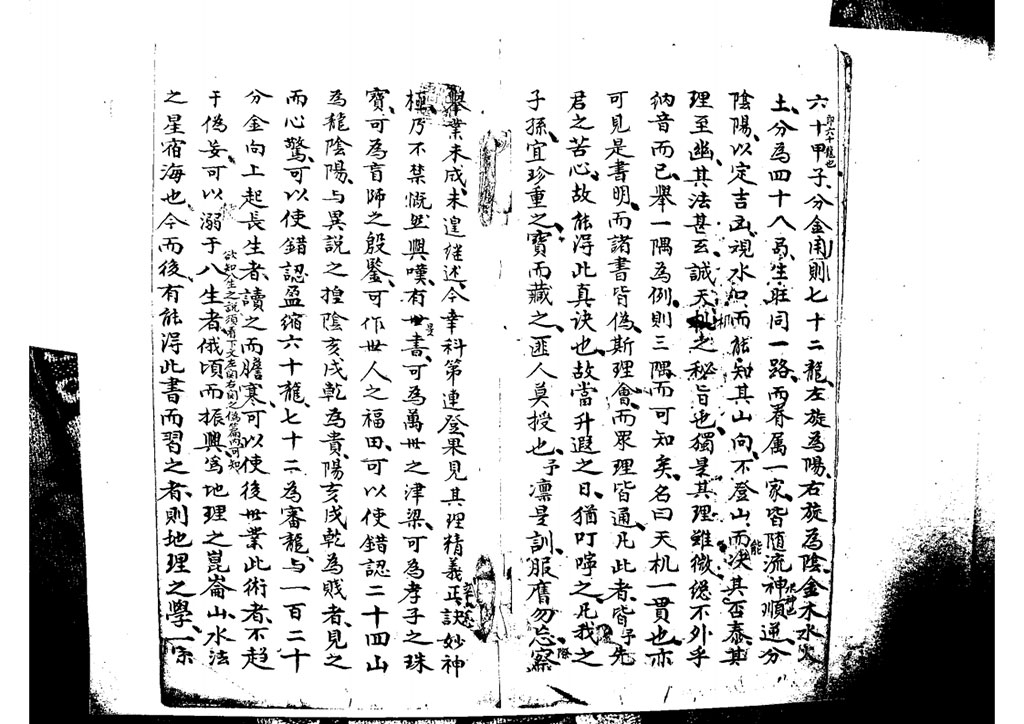 六十甲子分金用則七十二龍左旋為陽右旋為陰金木水火
即六十龍也
土分為四十八局生旺同一路而眷属一家皆随流神順逆分
水神也
陰陽以定吉凶視水口而能知其山向不登山而決其否泰其
能
理至幽其法甚玄誠天机之秘旨也獨是其理雖微總不外乎
机
納音而已舉一隅為例則三隅而可知矣名曰天机一貫也亦
可見是書明而諸書皆偽斯理會而眾理皆通凡此者皆予先
君之苦心故能得此真诀也故當升遐之日猶叮嚀之凡我之
子孫宜珍重之寶而藏之匪人莫授也予凛是訓服膺勿忘察
舉業未成未遑继述今幸科第連登果見其理精義正訣妙神
極乃不禁慨然興嘆有世書可為萬世之津梁可為孝子之珠
是
寶可為盲師之殷鑒可作世人之福田可以使錯認二十四山
為龍陰陽与異說之揑陰亥戌乾為貴陽亥戌乾為賤者見之
而心驚可以使錯認盈缩六十龍七十二為審龍与一百二十
分金向上起長生者讀之而膽寒可以使後世業此術者不趋
于偽妄可以溺于八生者俄頃而振興為地理之崑崙山水法
欲知八生之說須看下文左関右関之偽篇内可知
之星宿海也今而後有能得此書而習之者則地理之學一宗